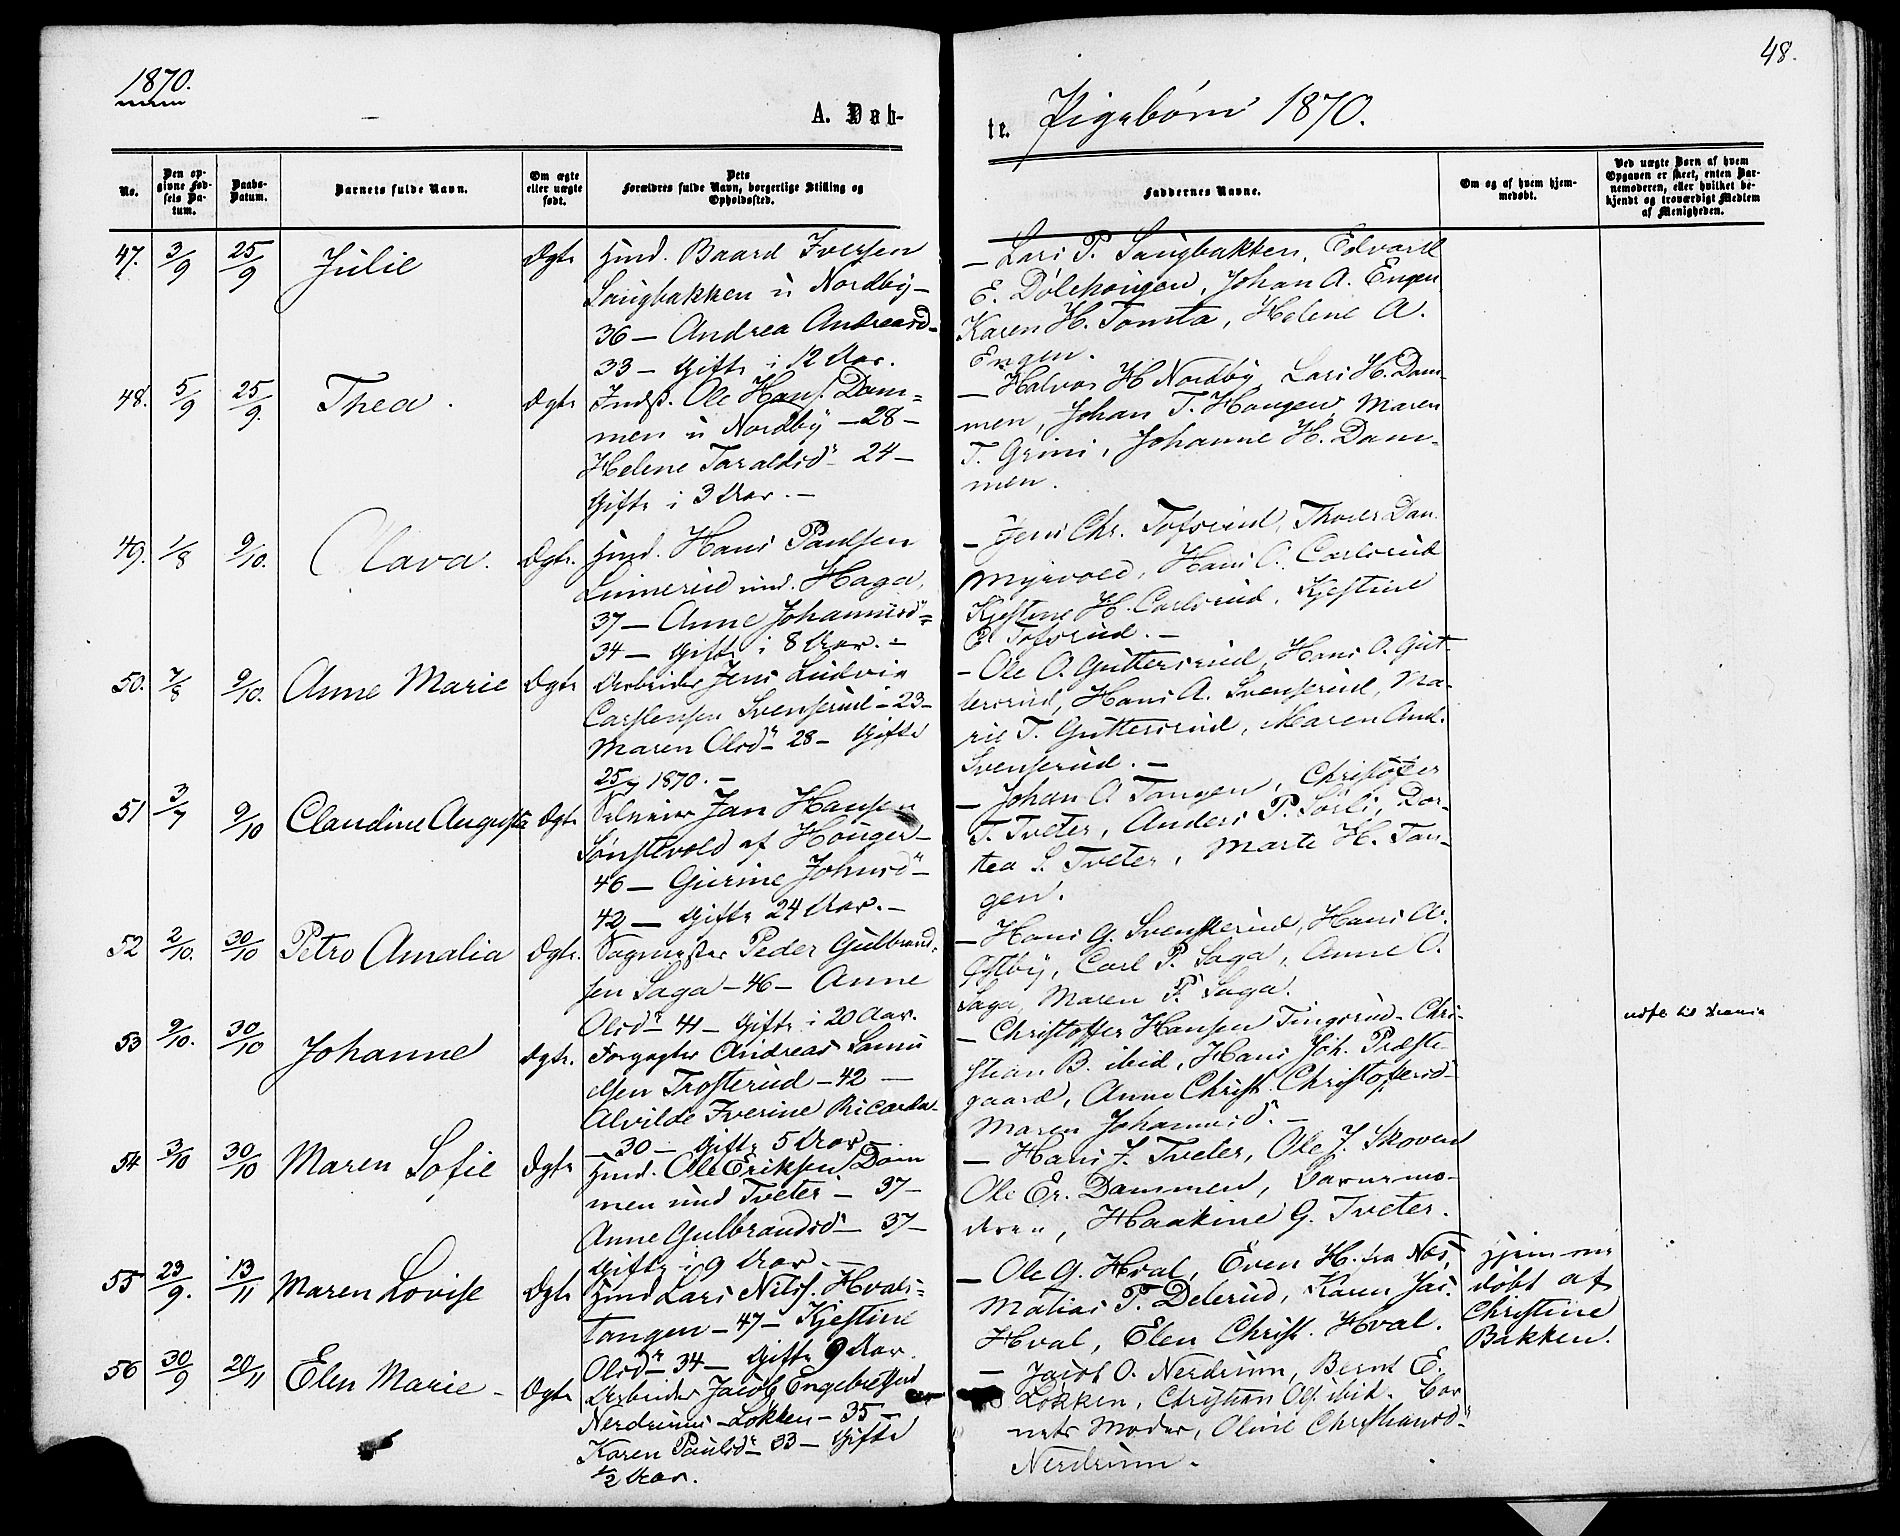 1870.
48.
A. Døb-
te.
Pigebørn 1870.
No.
Den op-
givne Fød-
sels Da-
tum.
Daabs-
Datum.
Barnets fulde Navn.
Om ægte
eller uægte
født.
Dets
Forældres fulde Navn, borgerlige Stilling og
Opholdssted.
Faddernes Navne.
Om og af hvem hjem-
medøbt.
Ved uægte Børn af hvem
Opgaven er skeet, enten Bar-
nemoderen, eller hvilket be-
kjendt og troværdigt Medlem
af Menigheden.
47. 3/9 25/9 Julie Ægte
Huusmd. Baard Iversen
Haugbakken u Nordby –
36 – Andrea Andreasd –
33 – Gifte i 12 Aar.
– Lars P. Haugbakken, Edvard
E. Dølehougen, Johan A. Engen
Karen H. Tomta, Helene A.
Engen.
48. 5/9 25/9. Thea. Ægte
Indss. Ole Hans. Dam=
men u Nordby – 28 –
Helene Taraldsd – 24 –
Gifte i 3 Aar. –
– Halvor H Nordby, Lars H. Dam-
men, Johan T. Haugen, Maren
T. Grini, Johanne H. Dam-
men.
49. 1/8 9/10. Clara. Ægte.
Hans Paulsen
Linnerud und. Haga,
37 – Anne Johannesd =
34 – Gifte i 8 Aar. –
– Jens Chr. Tofsrud, Thorer Dan.
Myrvold, Hans O. Carlsrud
Kjestine H. Carlsrud, Kjestine
Tofsrud. –
50. 7/8 9/10. Anne Marie Ægte
Arbeider Jens Ludvig
Carstensen Svenserud – 23 –
Maren Olsd – 28 – Gifte
25/7 1870. –
– Ole O. Guttersrud, Hans O. Gut-
tersrud, Hans A. Svenserud, Ma-
rie T. Guttersrud, Maren And.
Svenserud. –
51 3/7 9/10 Claudine Augusta Ægte
Selveier Jan Hansen
Sønstevold af Houger –
46 – Gurine Johnsd –
42 – Gifte 24 Aar. –
– Johan A. Tangen, Christofer
T. Tveter, Anders P. Sørli, Dor-
tea S. Tveter, Marte H. Tan-
gen.
52 2/10. 30/10 Petro Amalia Ægte.
Sagmester Peder Gulbrand-
sen Saga – 46 – Anne
Olsd – 41 – Gifte i 20 Aar.
– Hans G. Svenskerud, Hans A.
Østby, Carl P. Saga, Anne O.
Saga, Maren P. Saga.
53 9/10. 30/10 Johanne Ægte.
Forpagter Andreas Samu
elsen Trosterud – 42 –
Alvilde Iverine Ricarda
– 30 – Gifte 5 Aar
– Christoffer Hansen Tingsrud – Chri-
stian B. ibid, Hans Joh. Præste-
gaard, Anne Christ. Christofersd –
Maren Johannesd. –
54 3/10 30/10 Maren Sofie Ægte
Ole Eriksen Dam
men und Tveter – 37 –
Anne Gulbrandsd – 37 –
Gifte i 9 Aar –
– Hans J. Tveter, Ole J. Skoven
Ole Er. Dammen, Barnemo-
deren, Haakine G. Tveter.
55 23/9. 13/11 Maren Lovise Ægte
Lars Nilss. Hvals=
tangen – 47 – Kjestine
Olsd – 34 – Gifte 9 Aar.
– Ole G. Hval, Even H. fra Næs,
Matias P. Delerud, Karen Jac.
Hval, Elen Christ. Hval.
Hjemme
døbt af
Christine
Bakken.
56 30/9 20/11 Elen Marie – Ægte
Arbeider Jacob Engebretsen
Nerdrums – Løkken – 35 –
Karen Paulsd – 33 – Gifte
1/2 Aar.
– Jacob O. Nerdrum, Bernt E.
Løkken, Christian Ol. ibid. Bar
nets Moder, Oline Christiansd –
Nerdrum –